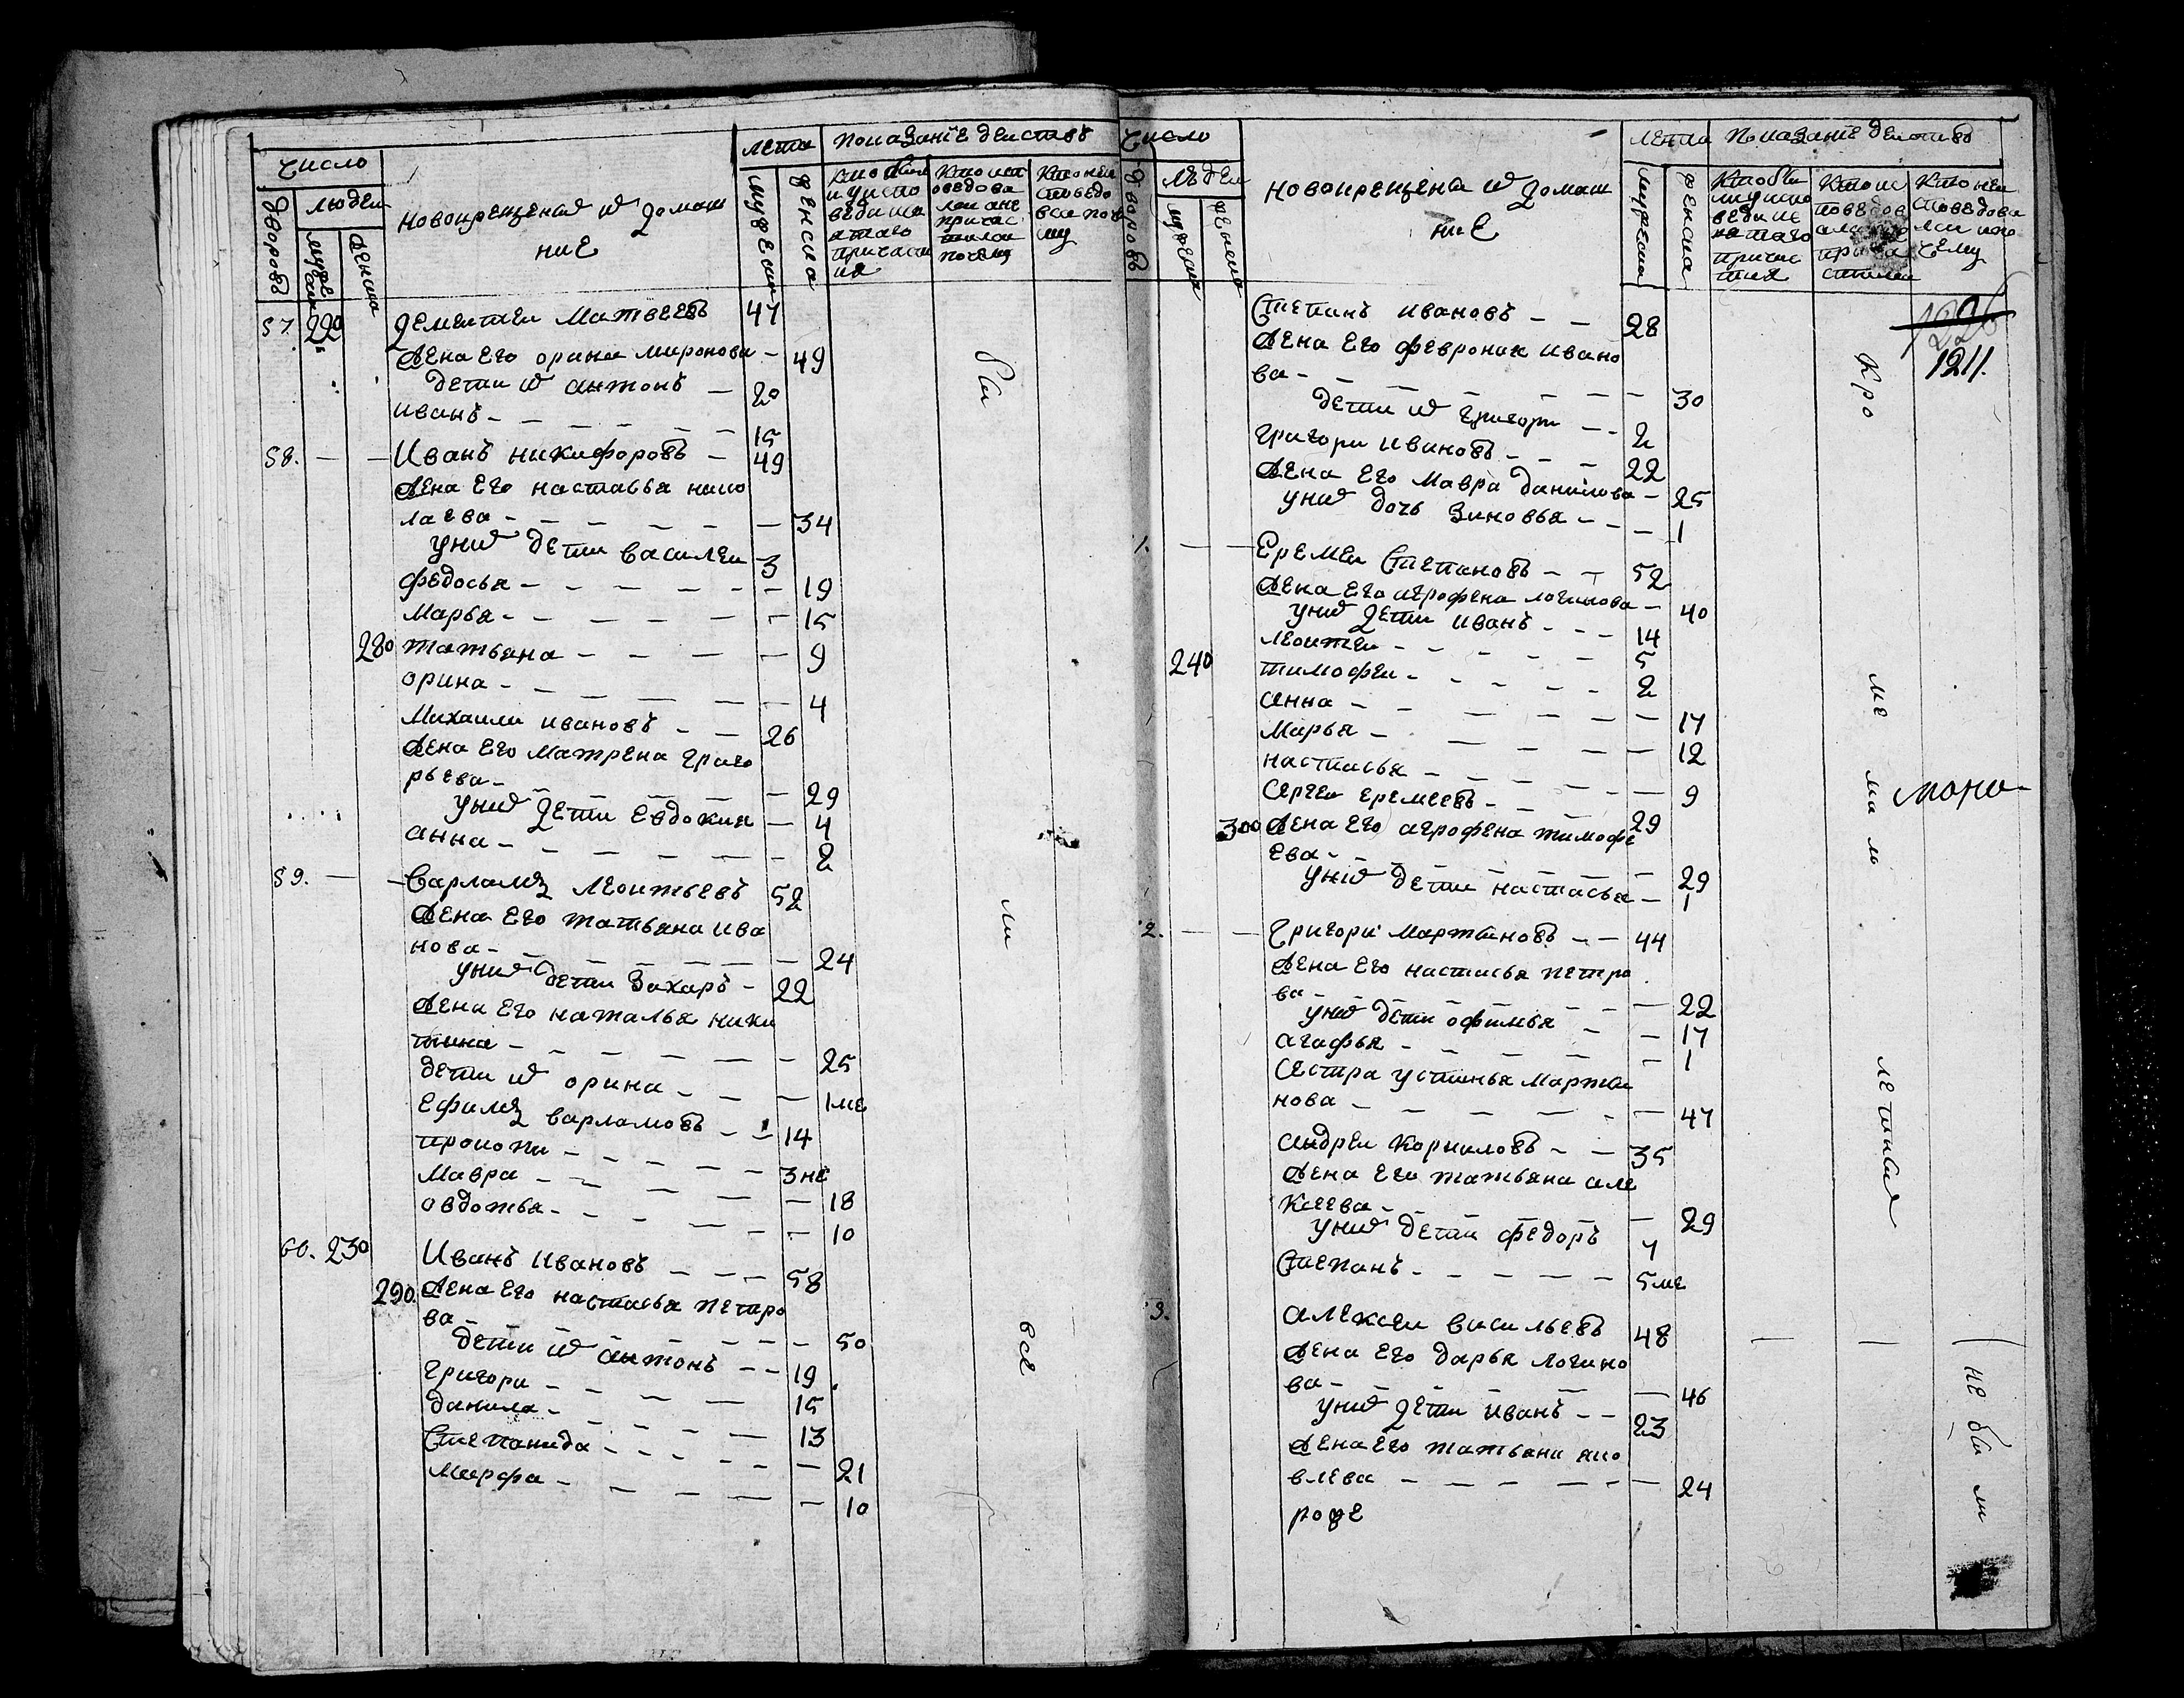 Число
Дворовъ
людей
мужеска
женска
новокрещены и домаш
ние
лета
мужеска
женска
показание действъ
Кто были
у испо
веди и с
ятаго
причаст
ия
Кто исп
оведова
лся а не
причас
тился
Кто не и
споведо
вал по ч
ему
57. 220 Дементеи Матвеевъ 47
Жена Его орина миронова - 49
дети их антонъ - 20
иванъ - - - - - - 15
58. - - Иванъ никифоровъ - 49
Жена Его настасья нико
лаева - - - - - - 34
у них дети василеи 3
федосья - - - - - - 19
Марья - - - - - - 15
280 татьяна - - - - - 9
орина - - - - - - 4
Михаили ивановъ - - 26
Жена Его Матрена григо
рьева - - - - - 29
у них дети Евдокия - 4
анна - - - - - - 2
59. - - Варламъ леонтьевъ 52
Жена Его татьяна ива
нова - - - - - - 24
у них дети Захаръ - 22
Жена Его наталья ники
тина - - - - - - 25
дети их орина - - - 1 ме
Ефимъ варламовъ - - 14
прокопи - - - - - 3 не
Мавра - - - - - 18
овдотья - - - - - - 10
60. 230 Иванъ Ивановъ - - - 58
290. Жена Его настасья петро
ва - - - - - - 50
дети их антонъ - - 19
григори - - - - - 15
данила - - - - - 13
Степанида - - - - - - 21
Марфа - - - - - - 10
бы
ли
все
Число
Дворовъ
людеи
мужеска
женска
новокрещены и домаш
ние
лета
мужеска
женска
показание деиствъ
Кто бы
ли у испо
веди и с
вятаго
причас
тия
Кто и
споведов
причa
стился
Кто не и
споведова
лся и по
чему
1226
1211.
Степанъ ивановъ - - 28
Жена Его феврония ивано
ва - - - - - - - 30
дети их григори - - 2
григори ивановъ - - - 22
Жена Его Мавра данилова - 25
у них дочь Зиновья - - - 1
1. - - Еремеи Степановъ - - 52
Жена Его агрофена логинова - 40
у них дети иванъ - - - 14
леонтеи - - - - - 5
240 тимофеи - - - - - 2
анна - - - - - - 17
Марья - - - - - 12
настасья - - - - - - 9
Сергеи еремеевъ - - - 29
300 Жена Его агрофена тимофе
ева - - - - - - 29
у них дети настасья - 1
2. - - Григори Мартиновъ - - 44
Жена Его настасья петро
ва - - - - - - 22
у них дети офимья - - - 17
агафья - - - - - - 1
Сестра устинья Марти
нова - - - - - - 47
андреи Корниловъ - - 35
Жена Его татьяна але
Ксеева - - 29
у них дети федоръ 4
Степанъ - - - - - 5 ме
3. алексеи васильевъ 48 - - -
Жена Его дарья логино
ва - - - - - - 46
у них дети иванъ - - 23
Жена Его татьяна яко
влева - - - - - - 24
роже
Кро
ме
ма ло
летных
не бы ли